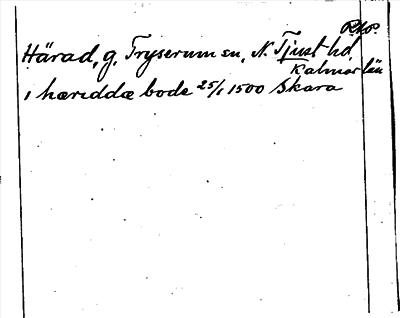 RAp.
Härad, g. Tryserum sn, N. Tjust hd
Kalmar län
i hæriddæ bode 25/1 1500 Skara